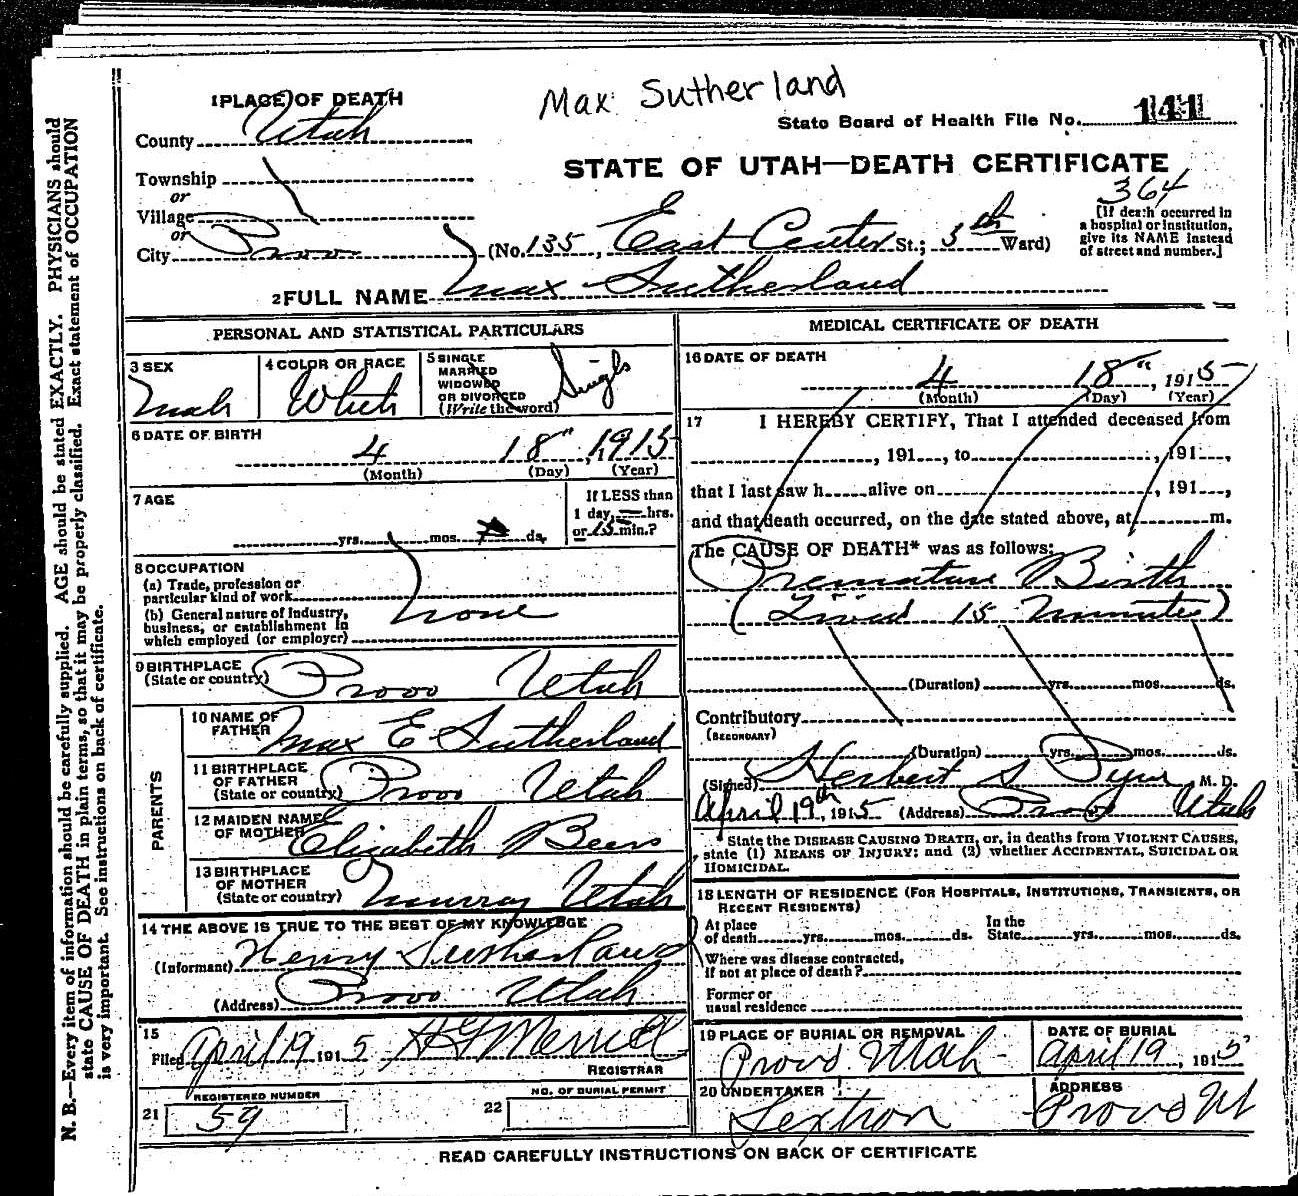 Max Sutherland
1 PLACE OF DEATH
County Utah
State Board of Health File No. 141
STATE OF UTAH—DEATH CERTIFICATE
364
Township
or
Village
or
City Provo (No. 135, East Center St.; 5th Ward)
[If death occurred in
a hospital or institution,
give its NAME instead
of street and number.]
2 FULL NAME Max Sutherland
PERSONAL AND STATISTICAL PARTICULARS
3 SEX
Male
4 COLOR OR RACE
White
5 SINGLE
MARRIED
WIDOWED
OR DIVORCED
(Write the word)
Single
6 DATE OF BIRTH
4 18", 1915
(Month) (Day) (Year)
7 AGE
yrs. mos. ds.
If LESS than
1 day, — hrs.
or 15 min.?
8 OCCUPATION
(a) Trade, profession or
particular kind of work
(b) General nature of Industry,
business, or establishment in
which employed (or employer)
none
9 BIRTHPLACE
(State or country)
Provo Utah
PARENTS
10 NAME OF
FATHER
Max E Sutherland
11 BIRTHPLACE
OF FATHER
(State or country)
Provo Utah
12 MAIDEN NAME
OF MOTHER
Elizabeth Beers
13 BIRTHPLACE
OF MOTHER
(State or country)
Murray Utah
14 THE ABOVE IS TRUE TO THE BEST OF MY KNOWLEDGE
(Informant) Henry Sutherland
(Address) Provo Utah
15
Filed April 19 1915 H G Merrill
REGISTRAR
REGISTERED NUMBER
21 59
NO. OF BURIAL PERMIT
22
MEDICAL CERTIFICATE OF DEATH
16 DATE OF DEATH
4 18", 1915
(Month) (Day) (Year)
17 I HEREBY CERTIFY, That I attended deceased from
, 191 , to , 191 ,
that I last saw h alive on , 191 ,
and that death occurred, on the date stated above, at m.
The CAUSE OF DEATH* was as follows:
Premature Birth
(Lived 15 Minutes)
(Duration) yrs. mos. ds.
Contributory
(SECONDARY)
(Duration) yrs. mos. ds.
(Signed) Herbert S Pyne M. D.
April 19th, 1915 (Address) Provo Utah
* State the DISEASE CAUSING DEATH, or, in deaths from VIOLENT CAUSES,
state (1) MEANS OF INJURY; and (2) whether ACCIDENTAL, SUICIDAL OR
HOMICIDAL.
18 LENGTH OF RESIDENCE (FOR HOSPITALS, INSTITUTIONS, TRANSIENTS, OR
RECENT RESIDENTS)
At place
of death yrs. mos. ds.
In the
State yrs. mos. ds.
Where was disease contracted,
if not at place of death?
Former or
usual residence
19 PLACE OF BURIAL OR REMOVAL
Provo Utah
DATE OF BURIAL
April 19, 1915
20 UNDERTAKER
Sextron
ADDRESS
Provo Ut
READ CAREFULLY INSTRUCTIONS ON BACK OF CERTIFICATE
N. B.—Every item of information should be carefully supplied. AGE should be stated EXACTLY. PHYSICIANS should
state CAUSE OF DEATH in plain terms, so that it may be properly classified. Exact statement of OCCUPATION
is very important. See instructions on back of certificate.